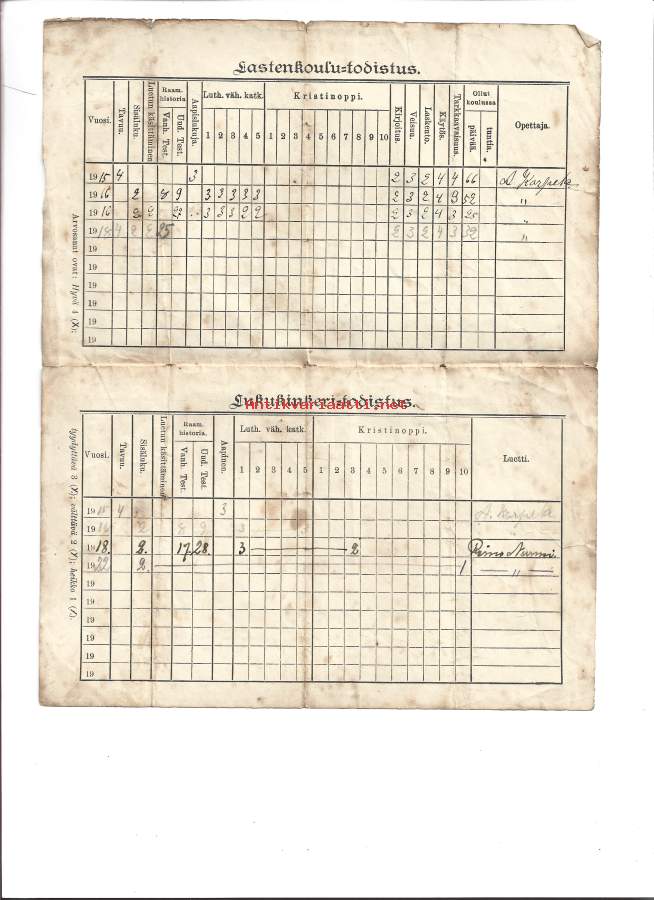 Lastenkoulu-todistus.
Vuosi. Tavuu. Sisäluku. Luetun käsittäminen Raam. historia Vanh. Test. Uud. Test. Aapislukuja. Luth. väh. katk. 1 2 3 4 5 Kristinoppi. 1 2 3 4 5 6 7 8 9 10 Kirjoitus. Veisuu. Laskento. Käytös. Tarkkaavaisuus. Ollut koulussa päivää. tuntia. Opettaja.
1915 4 3 2 3 2 4 4 66
1916 2 8 9 3 3 3 3 3 2 3 2 4 3 52 „
1916 2 2 3 3 3 2 2 2 3 2 4 3 25 „
1918 4 2 2 25 2 3 2 4 3 32 „
19
19
19
19
19
19
Arvosanat ovat: Hyvä 4 (X);
Lukukinkeri-todistus.
antikvariaatti.net
Vuosi. Tavuu. Sisäluku. Luetun käsittäminen Raam. historia. Vanh. Test. Uud. Test. Aapinen. Luth. väh. katk. 1 2 3 4 5 Kristinoppi. 1 2 3 4 5 6 7 8 9 10 Luetti.
1915 4 3
1916 2 8 9 3 3
1918. 2. 17. 28. 3 2 Nurmi.
1922 2. 1 „
19
19
19
19
19
19
tyydyttävä 3 (X); välttävä 2 (X); heikko 1 (/).